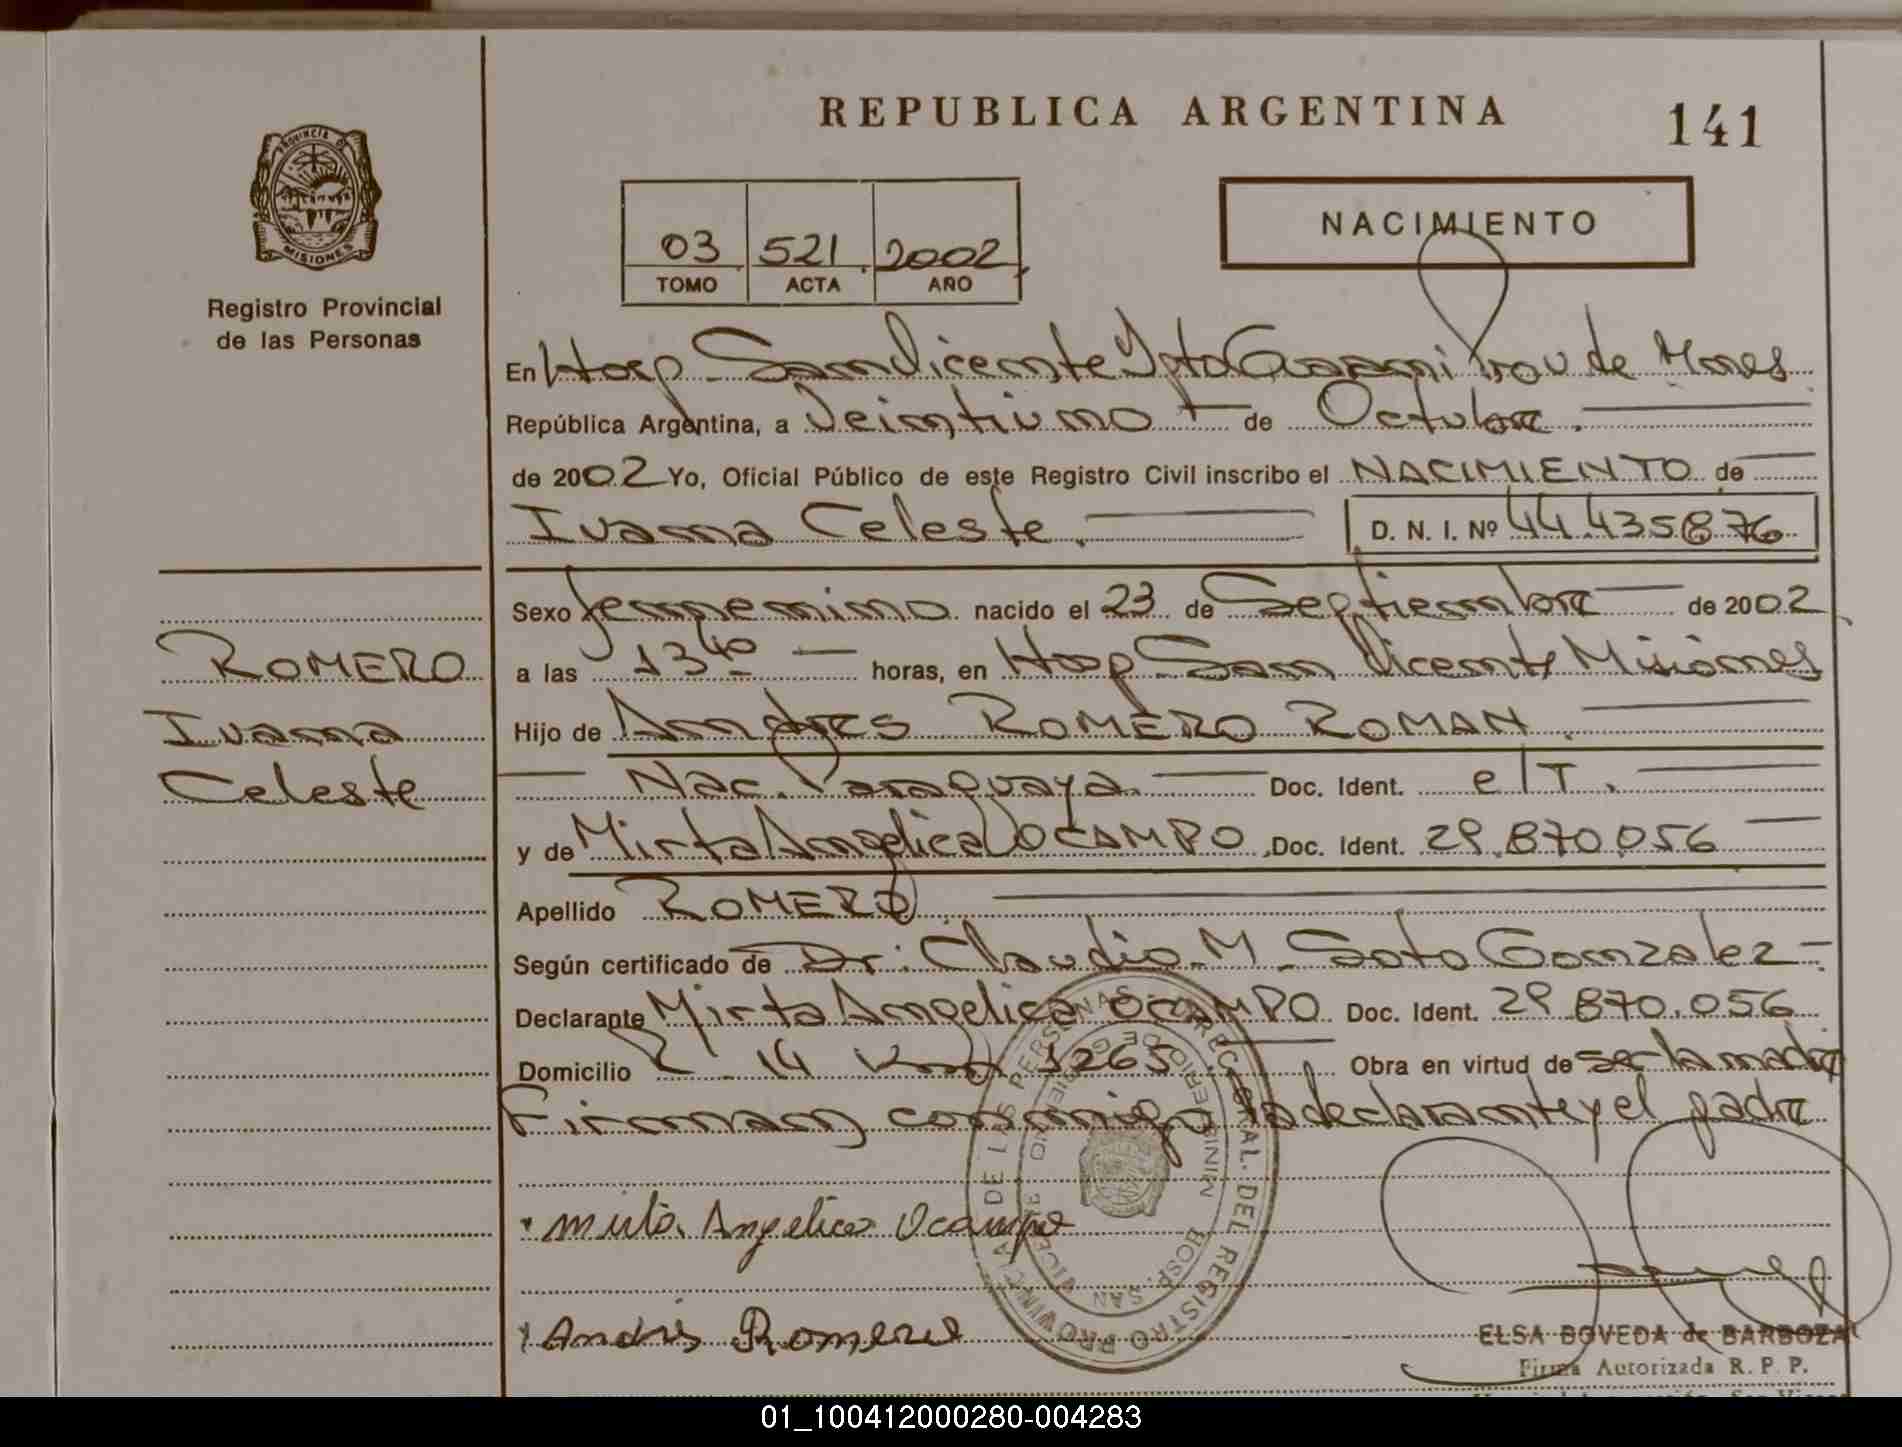 REPUBLICA ARGENTINA
141
PROVINCIA DE
MISIONES
Registro Provincial
de las Personas
03 521 2002
TOMO ACTA AÑO
NACIMIENTO
En Hosp San Vicente Dpto Guarani Prov de Mnes
República Argentina, a Veintiuno de Octubre.
de 2002 Yo, Oficial Público de este Registro Civil inscribo el NACIMIENTO de
Ivana Celeste. D. N. I. Nº 44.435876
Sexo femenino nacido el 23 de Septiembre de 2002
a las 13 40 horas, en Hosp San Vicente Misiones
Hijo de Andres ROMERO ROMAN.
Nac. Paraguaya. Doc. Ident. e/T.
y de Mirta Angelica OCAMPO Doc. Ident. 29.870.056
Apellido ROMERO
Según certificado de Dr. Claudio M. Soto Gonzalez
Declarante Mirta Angelica OCAMPO Doc. Ident. 29.870.056
Domicilio 14 1265 Obra en virtud de ser la madre
Firman conmigo la declarante y el padre
ROMERO
Ivana
Celeste
Mirta Angelica Ocampo
Andrés Romero
DIREC. GRAL. DEL REGISTRO PROVINCIAL DE LAS PERSONAS
MINISTERIO DE GOBIERNO
HOSP. SAN VICENTE
ELSA BOVEDA de BARBOZA
Firma Autorizada R. P. P.
01_100412000280-004283